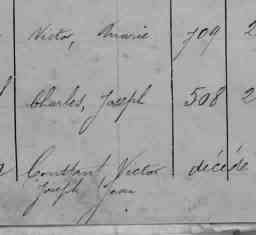 Victor, Marie 709 2
Charles, Joseph 508 2
Constant, Victor décédé
Joseph Jean